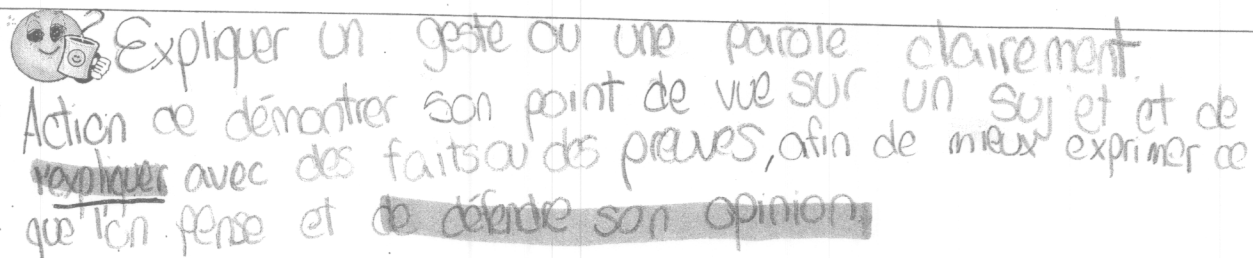 Expliquer un geste ou une parole clairement.
Action de démontrer son point de vue sur un sujet et de
l'expliquer avec des faits ou des preuves, afin de mieux exprimer ce
que l'on pense et de défendre son opinion.